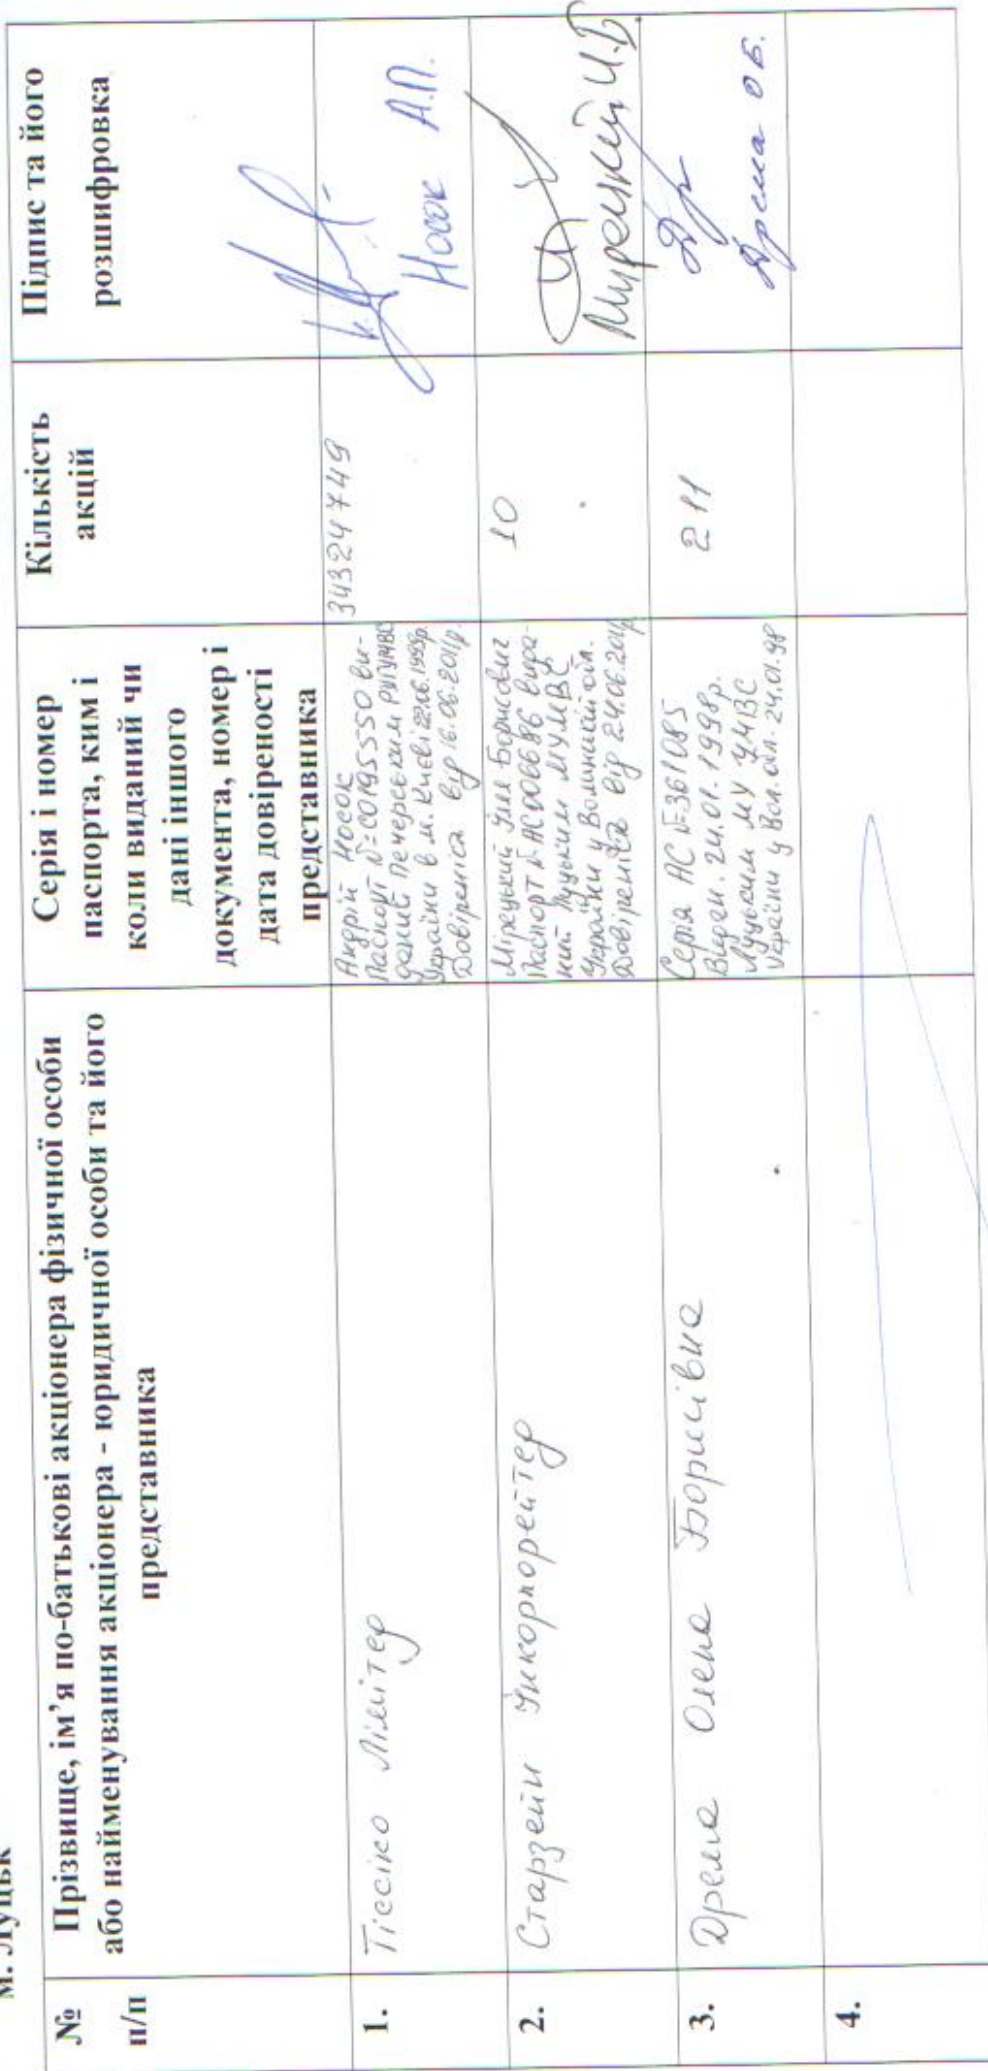 м. Луцьк
№
п/п
Прізвище, ім’я по-батькові акціонера фізичної особи
або найменування акціонера - юридичної особи та його
представника
Серія і номер
паспорта, ким і
коли виданий чи
дані іншого
документа, номер і
дата довіреності
представника
Кількість
акцій
Підпис та його
розшифровка
1.
Тіссіко Лімітед
Андрій Носок
Паспорт №СО195550 ви-
даний Печерським РУГУМВС
України в м. Києві 22.06.1999р.
Довіреність від 16.06.2011р.
34324749
Носок А.П.
2.
Старзейн Інкорпорейтед
Мірецький Ілля Борисович
Паспорт № АС006686 вида-
ний Луцьким МУМВС
України у Волинській обл.
Довіреність від 24.06.2011р
10
Мирецкий И.Б.
3.
Дрема Олена Борисівна
Серія АС №361085
Видан. 24.01.1998р.
Луцьким МУ УМВС
України у Вол. обл. 24.01.98
211
Дрема О Б.
4.